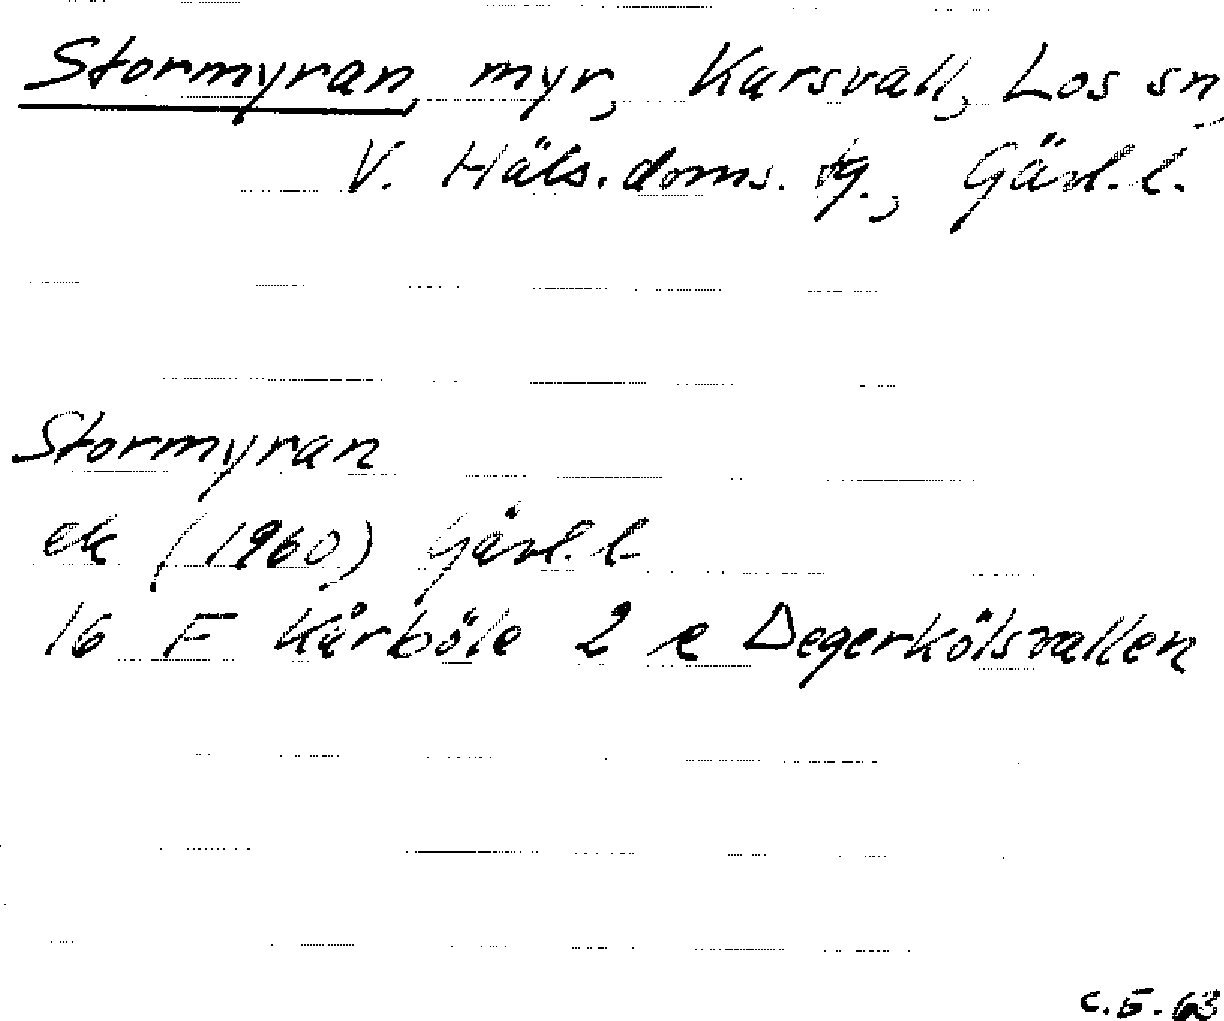 Stormyran, myr, Karsvall, Los sn,
V. Häls. doms. tg., Gävl. l.
Stormyran
ek (1960) Gävl. l.
16 F Kårböle 2 e Degerkölsvallen
C.E. 63